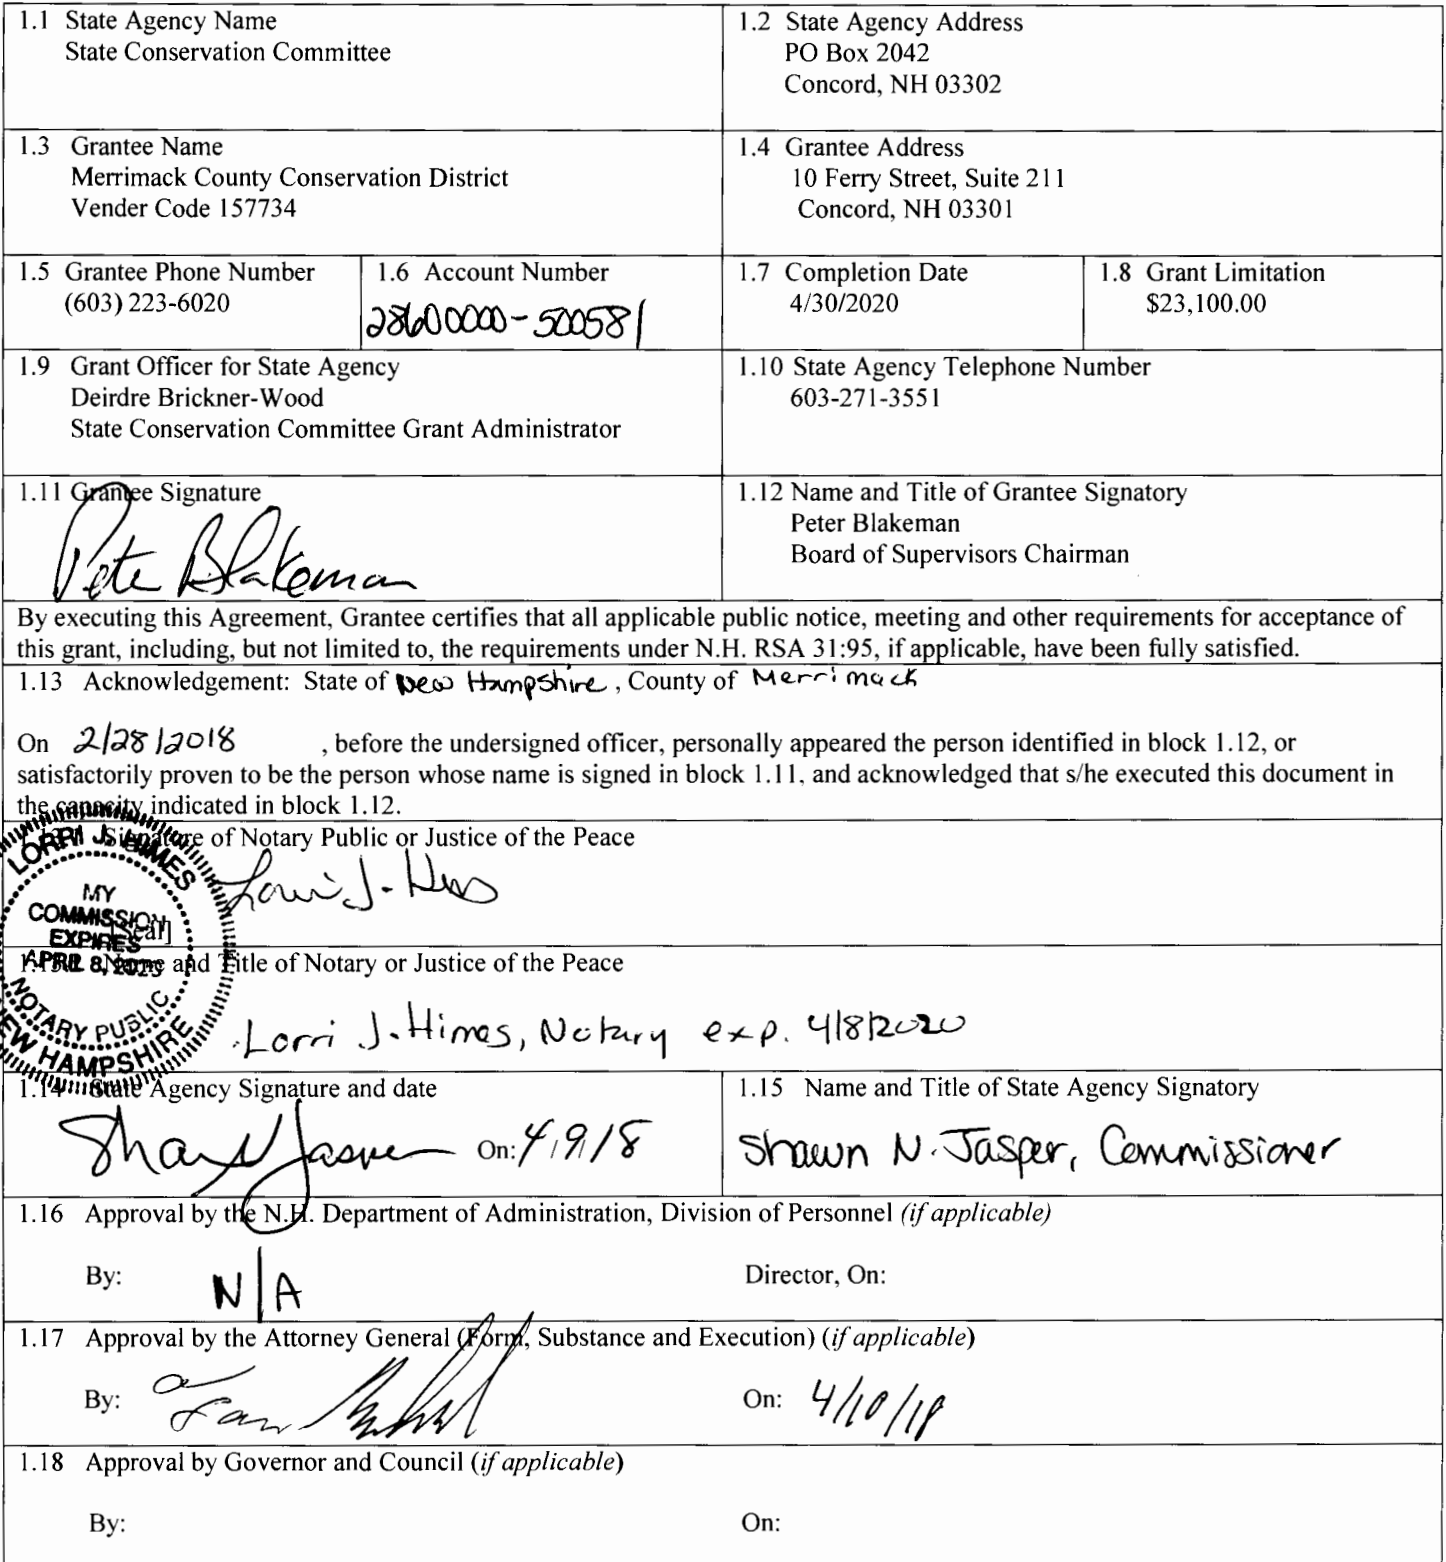 1.1 State Agency Name
State Conservation Committee
1.2 State Agency Address
PO Box 2042
Concord, NH 03302
1.3 Grantee Name
Merrimack County Conservation District
Vender Code 157734
1.4 Grantee Address
10 Ferry Street, Suite 211
Concord, NH 03301
1.5 Grantee Phone Number
(603) 223-6020
1.6 Account Number
28600000-500581
1.7 Completion Date
4/30/2020
1.8 Grant Limitation
$23,100.00
1.9 Grant Officer for State Agency
Deirdre Brickner-Wood
State Conservation Committee Grant Administrator
1.10 State Agency Telephone Number
603-271-3551
1.11 Grantee Signature
Pete Blakeman
1.12 Name and Title of Grantee Signatory
Peter Blakeman
Board of Supervisors Chairman
By executing this Agreement, Grantee certifies that all applicable public notice, meeting and other requirements for acceptance of
this grant, including, but not limited to, the requirements under N.H. RSA 31:95, if applicable, have been fully satisfied.
1.13 Acknowledgement: State of New Hampshire, County of Merrimack
On 2/28/2018 , before the undersigned officer, personally appeared the person identified in block 1.12, or
satisfactorily proven to be the person whose name is signed in block 1.11, and acknowledged that s/he executed this document in
the capacity indicated in block 1.12.
Signature of Notary Public or Justice of the Peace
LORRI J. HIMES
MY
COMMISSION
EXPIRES
APRIL 8,
NOTARY PUBLIC
NEW HAMPSHIRE
[Seal]
Name and Title of Notary or Justice of the Peace
Lorri J. Himes, Notary exp. 4/8/2020
1.14 State Agency Signature and date
Shawn N Jasper On: 4/9/18
1.15 Name and Title of State Agency Signatory
Shawn N. Jasper, Commissioner
1.16 Approval by the N.H. Department of Administration, Division of Personnel (if applicable)
By: N/A Director, On:
1.17 Approval by the Attorney General (Form, Substance and Execution) (if applicable)
By: On: 4/10/18
1.18 Approval by Governor and Council (if applicable)
By: On: